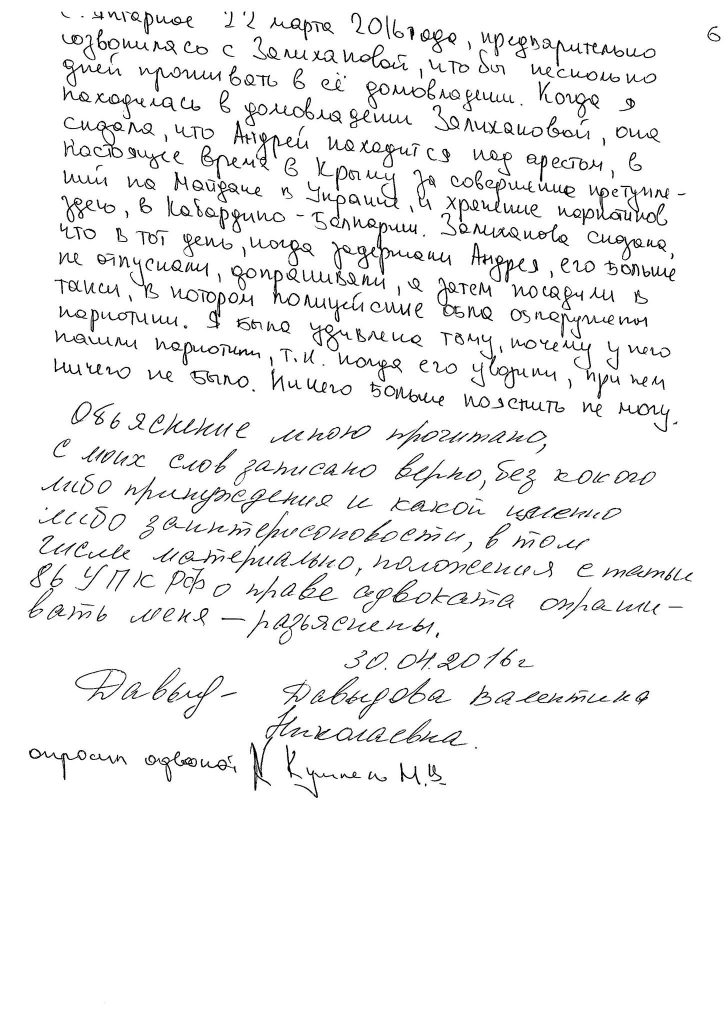 6
с. Янтарное 22 марта 2016 года, предварительно
созвонилась с Залихановой, чтобы несколько
дней проживать в её домовладении. Когда я
находилась в домовладении Залихановой, она
сказала, что Андрей находится под арестом, в
настоящее время в Крыму за совершение преступле-
ний на Майдане в Украине, и хранение наркотиков
здесь, в Кабардино-Балкарии. Залиханова сказала,
что в тот день, когда задержали Андрея, его больше
не отпускали, допрашивали, а затем посадили в
такси, в котором полицейские были обнаружены
наркотики. Я была удивлена тому, почему у него
нашли наркотики, т.к. когда его уводили, при нем
ничего не было. Ничего больше пояснить не могу.
Объяснение мною прочитано,
с моих слов записано верно, без кокого
либо принуждения и какой именно
либо заинтерисоповости, в том
числе материально, положения статьи
86 УПК РФ о праве адвоката опраши-
вать меня — разъяснены.
30.04.2016г
Давыд- Давыдова Валентина
Николаевна.
опросил адвокат М.В.